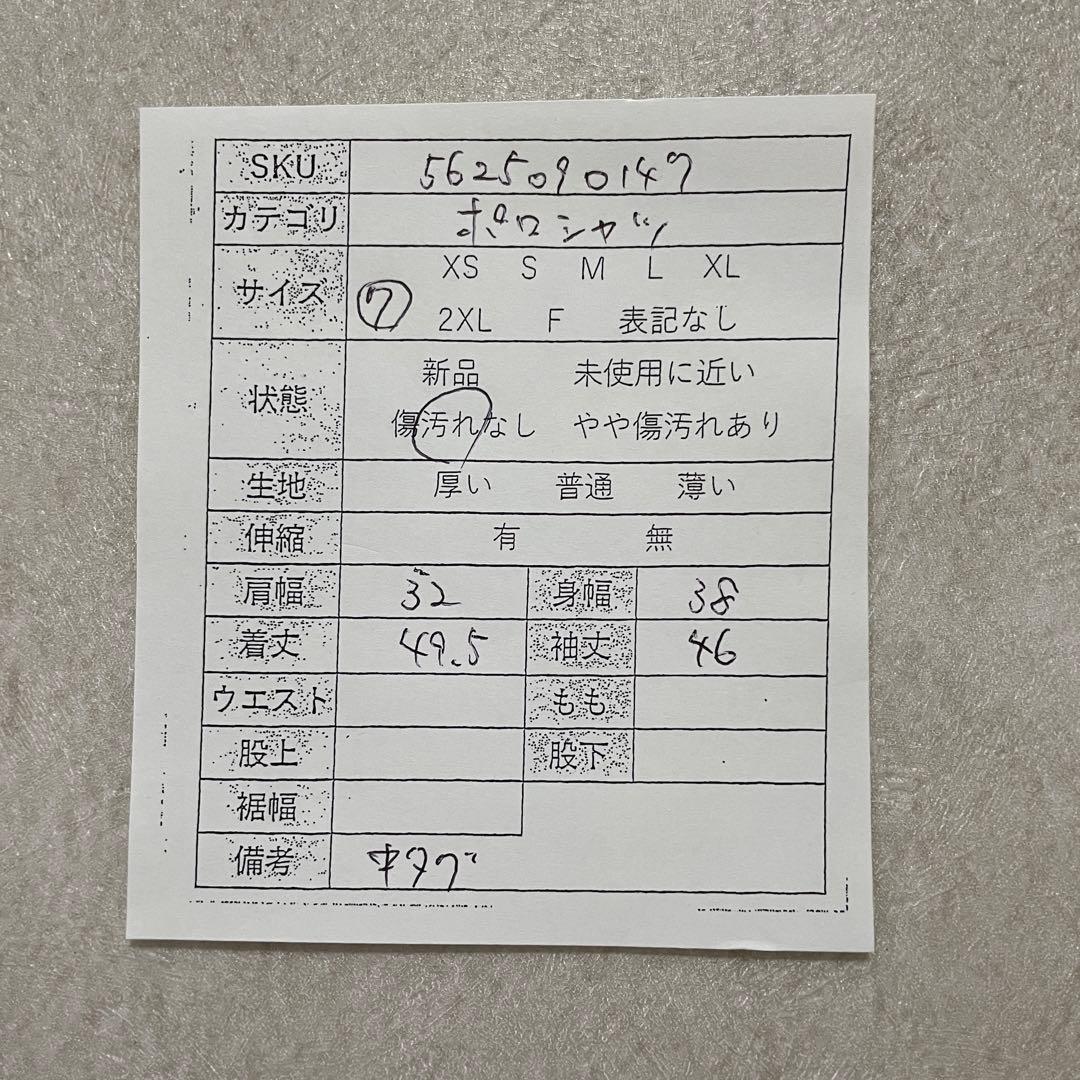 SKU 5625090149
カテゴリ ポロシャツ
サイズ XS S M L XL
⑦ 2XL F 表記なし
状態 新品 未使用に近い
傷汚れなし やや傷汚れあり
生地 厚い 普通 薄い
伸縮 有 無
肩幅 32 身幅 38
着丈 49.5 袖丈 46
ウエスト もも
股上 股下
裾幅
備考 中タグ